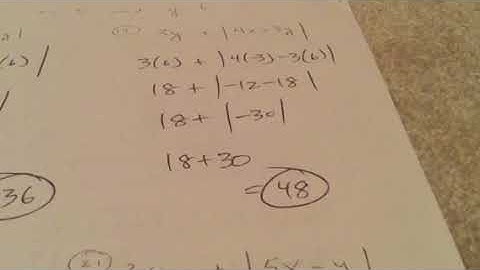 3y + |4x-3y|
3(6) + |4(-3)-3(6)|
18 + |-12-18|
18 + |-30|
18+30
= 48
36
21
+ |5x - 4|